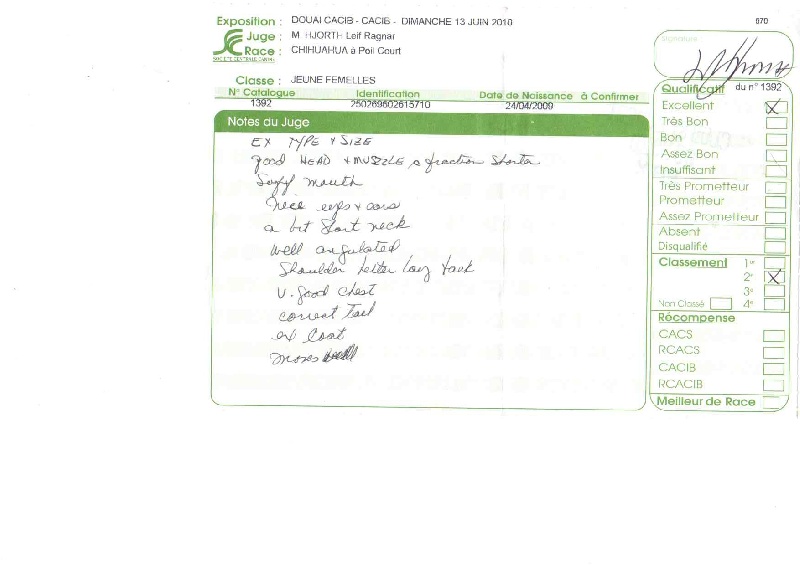 Exposition : DOUAI CACIB - CACIB - DIMANCHE 13 JUIN 2010
670
Juge : M HJORTH Leif Ragnar
Race : CHIHUAHUA à Poil Court
SOCIETE CENTRALE CANINE
Signature
Classe : JEUNE FEMELLES
N° Catalogue Identification Date de Naissance à Confirmer
1392 250269602615710 24/04/2009
Notes du Juge
EX TYPE + SIZE
good HEAD + MUZZLE a fraction shorter
mouth
nice eyes + ears
a bit short neck
well angulated
Shoulder better back
v. good chest
correct tail
ex Coat
moves
Qualificatif du n° 1392
Excellent X
Très Bon
Bon
Assez Bon
Insuffisant
Très Prometteur
Prometteur
Assez Prometteur
Absent
Disqualifié
Classement 1er
2e X
3e
Non Classé 4e
Récompense
CACS
RCACS
CACIB
RCACIB
Meilleur de Race